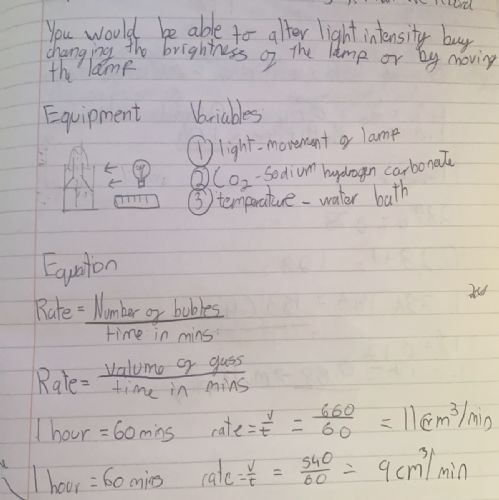 You would be able to alter light intensity buy
changing the brightness of the lamp or by moving
the lamp
Equipment Variables
① light-movement of lamp
② CO2-sodium hydrogen carbonate
③ temperature - water bath
Equation
Rate = Number of bubbles / time in mins
Rate = valume of guss / time in mins
1 hour = 60 mins rate = v/t = 660/60 = 11cm³/min
1 hour = 60 mins rate = v/t = 540/60 = 9cm³/min